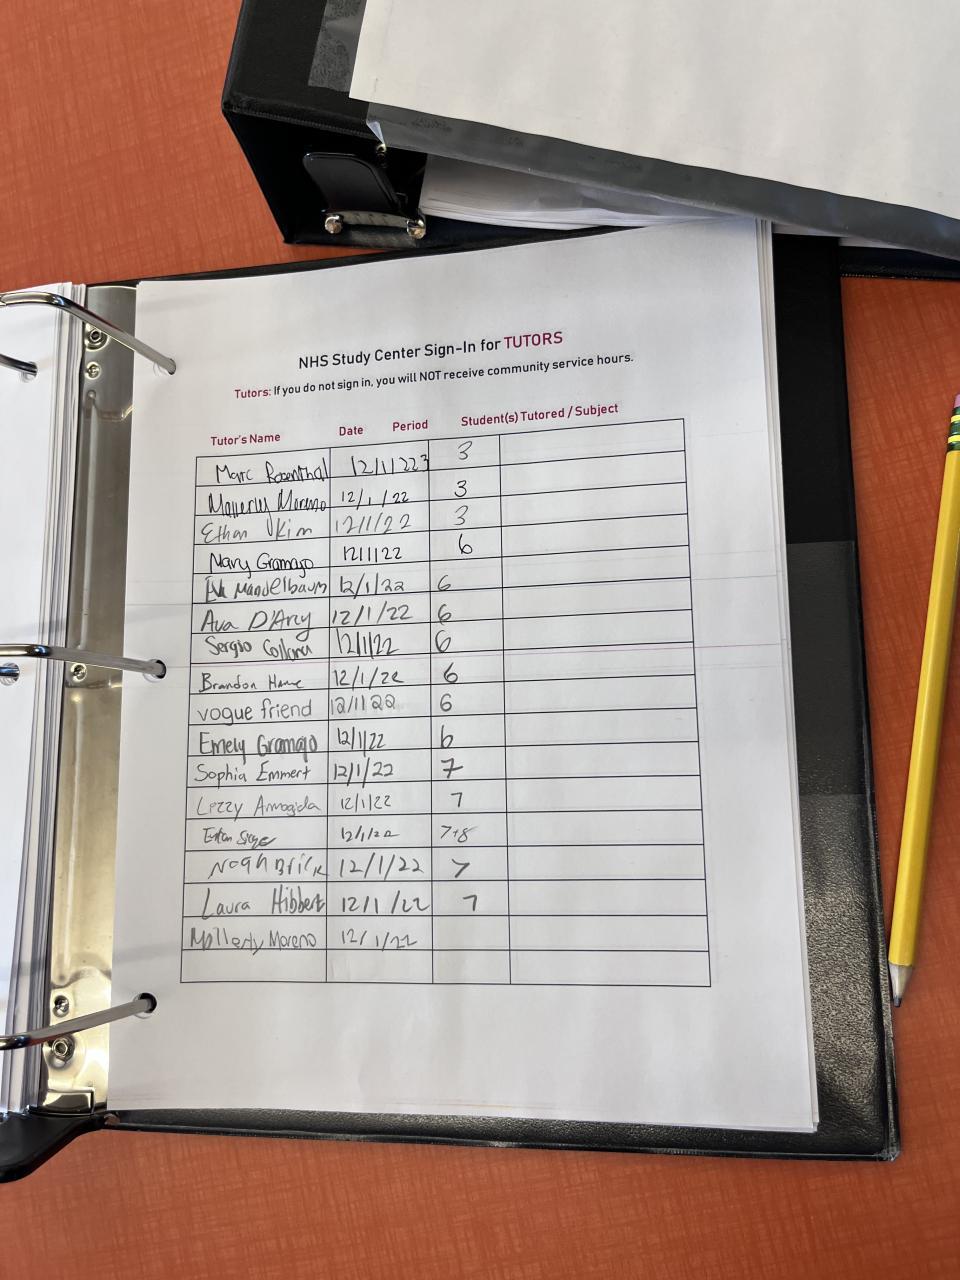 NHS Study Center Sign-In for TUTORS
Tutors: If you do not sign in, you will NOT receive community service hours.
Tutor's Name Date Period Student(s) Tutored / Subject
Marc Rosenthal 12/1/22 3 3
Moreno 12/1/22 3
Ethan Kim 12/1/22 3
Nary Gramajo 12/1/22 6
Mandelbaum 12/1/22 6
Ava D'Arcy 12/1/22 6
Sergio 12/1/22 6
Brandon 12/1/22 6
vogue friend 12/1/22 6
Emely Gramajo 12/1/22 6
Sophia Emmert 12/1/22 7
12/1/22 7
12/1/22 7+8
Noah Brick 12/1/22 7
Laura Hibbert 12/1/22 7
Moreno 12/1/22